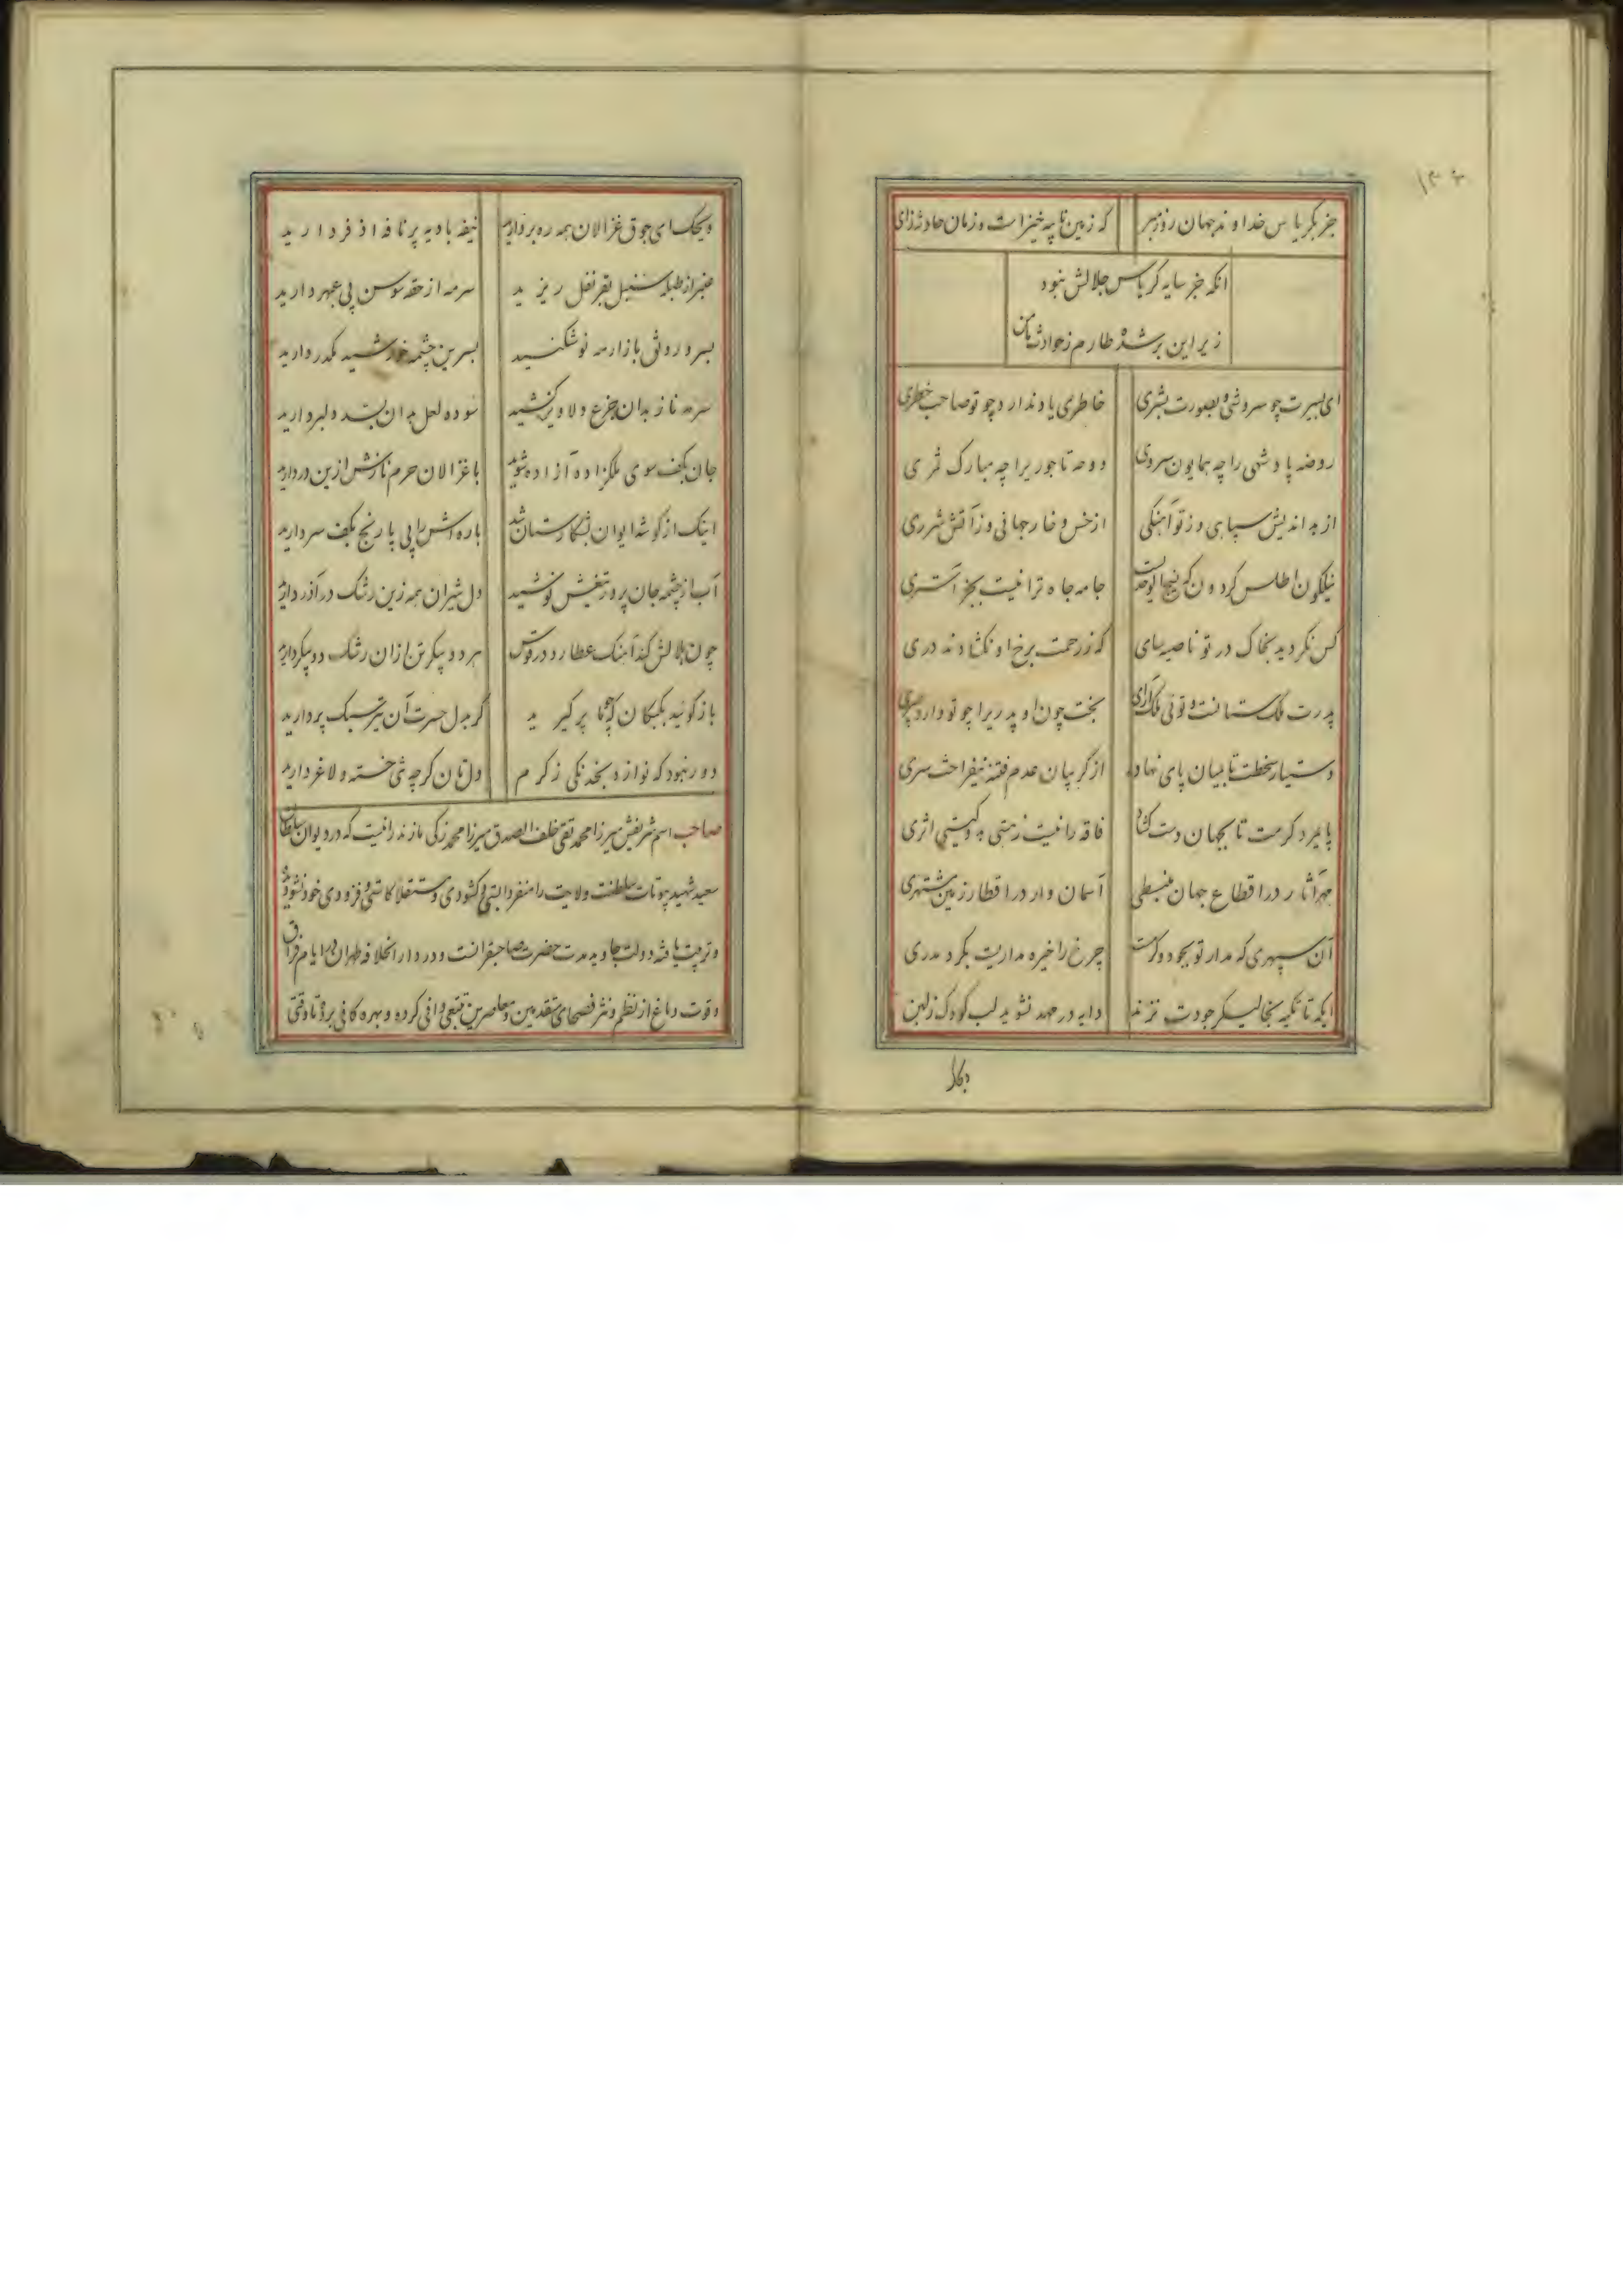 ۱۳۶
جز بکریاس خداوند جهان روز مبر که زمین تا چه خیزاست و زمان حادثه زای
انکه جز سایه کریاس جلالش نبود
زیر این برشده طارم ز حوادث
ای بسیرت چو سروشی و بصورت بشری خاطری یاد ندارد چو تو صاحب خطری
روضه پادشهی را چه همایون سروی دوحه تاجوریرا چه مبارک ثمری
از بد اندیش سپاهی و ز تو آهنکی از خس و خار جهانی و ز آتش شرری
نیلکون اطلس کردون که جامه جاه ترا نیست بجز آستری
کس نکردید بخاک در تو ناصیه سای که ز رحمت برخ او نکشادند دری
پدرت ملک ستانست و توئی ملک آرای بخت چون او پدریرا چو تو دارد پسری
دستیار سخطت تا بمیان پای نهاد از کریبان عدم فتنه نیفراخت سری
پایمرد کرمت تا بجهان دست کشاد فاقه را نیست ز هستی به کیتی اثری
مهر آثار در اقطاع جهان منبسطی آسمان وار در اقطار زمین مشتهری
آن سپهری که مدار تو بجود و کرمست چرخ را خیره مداریست بکرد مدری
ایکه تا تکیه بخالیسکر جودت نزند دایه در مهد نشوید لب کودک ز لبن
ویحک ای جوق غزالان همه ره بردارید نیفه بادیه پر نافه اذفر دارید
عنبر از طبله سنبل بقرنفل ریزید سرمه از حقه سوسن پی عبهر دارید
بسرو رونق بازار مه نو شکنید بسرین چشمه خورشید مکدر دارید
سرمه ناز بدان جزع دلاویز کشید سوده لعل بدان بسد دلبر دارید
جان بکف سوی ملکزاده آزاده شوید با غزالان حرم نازش ازین در دارید
اینک از کوشه ایوان بشکارستان شد باره اش را پی پا رنج بکف سر دارید
آب از چشمه جان پرور تیغش نوشید دل شیران همه زین رشک در آذر دارید
چون هلالش کند آهنک عطارد در قوس هر دو پیکر تن ازان رشک دو پیکر دارید
باز کوئید بکبکان که هما پر کیرید کر بدل حسرت آن تیر سبک پر دارید
دور نبود که نوازد بخدنکی ز کرم دلتان کرچه شی خسته و لاغر دارید
صاحب اسم شریفش میرزا محمد تقی خلف الصدق میرزا محمد زکی مازندرانیست که در دیوان سلطان
سعید شهید بیوتات سلطنت و لایت را منفردا بستی و کشودی و مستقلا کاستی و فزودی خود نشو و
و تربیت یافته دولت جاوید مدت حضرت صاحبقرانست و در دار الخلافه طهران در ایام فراق
وقوت دماغ از نظم و نثر فصحای متقدمین و معاصرین تتبعی وافی کرده و بهره کافی برده تا وقتی